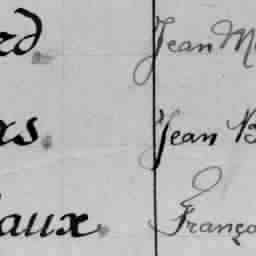 rd. Jean M
rs. Jean B
aux. França